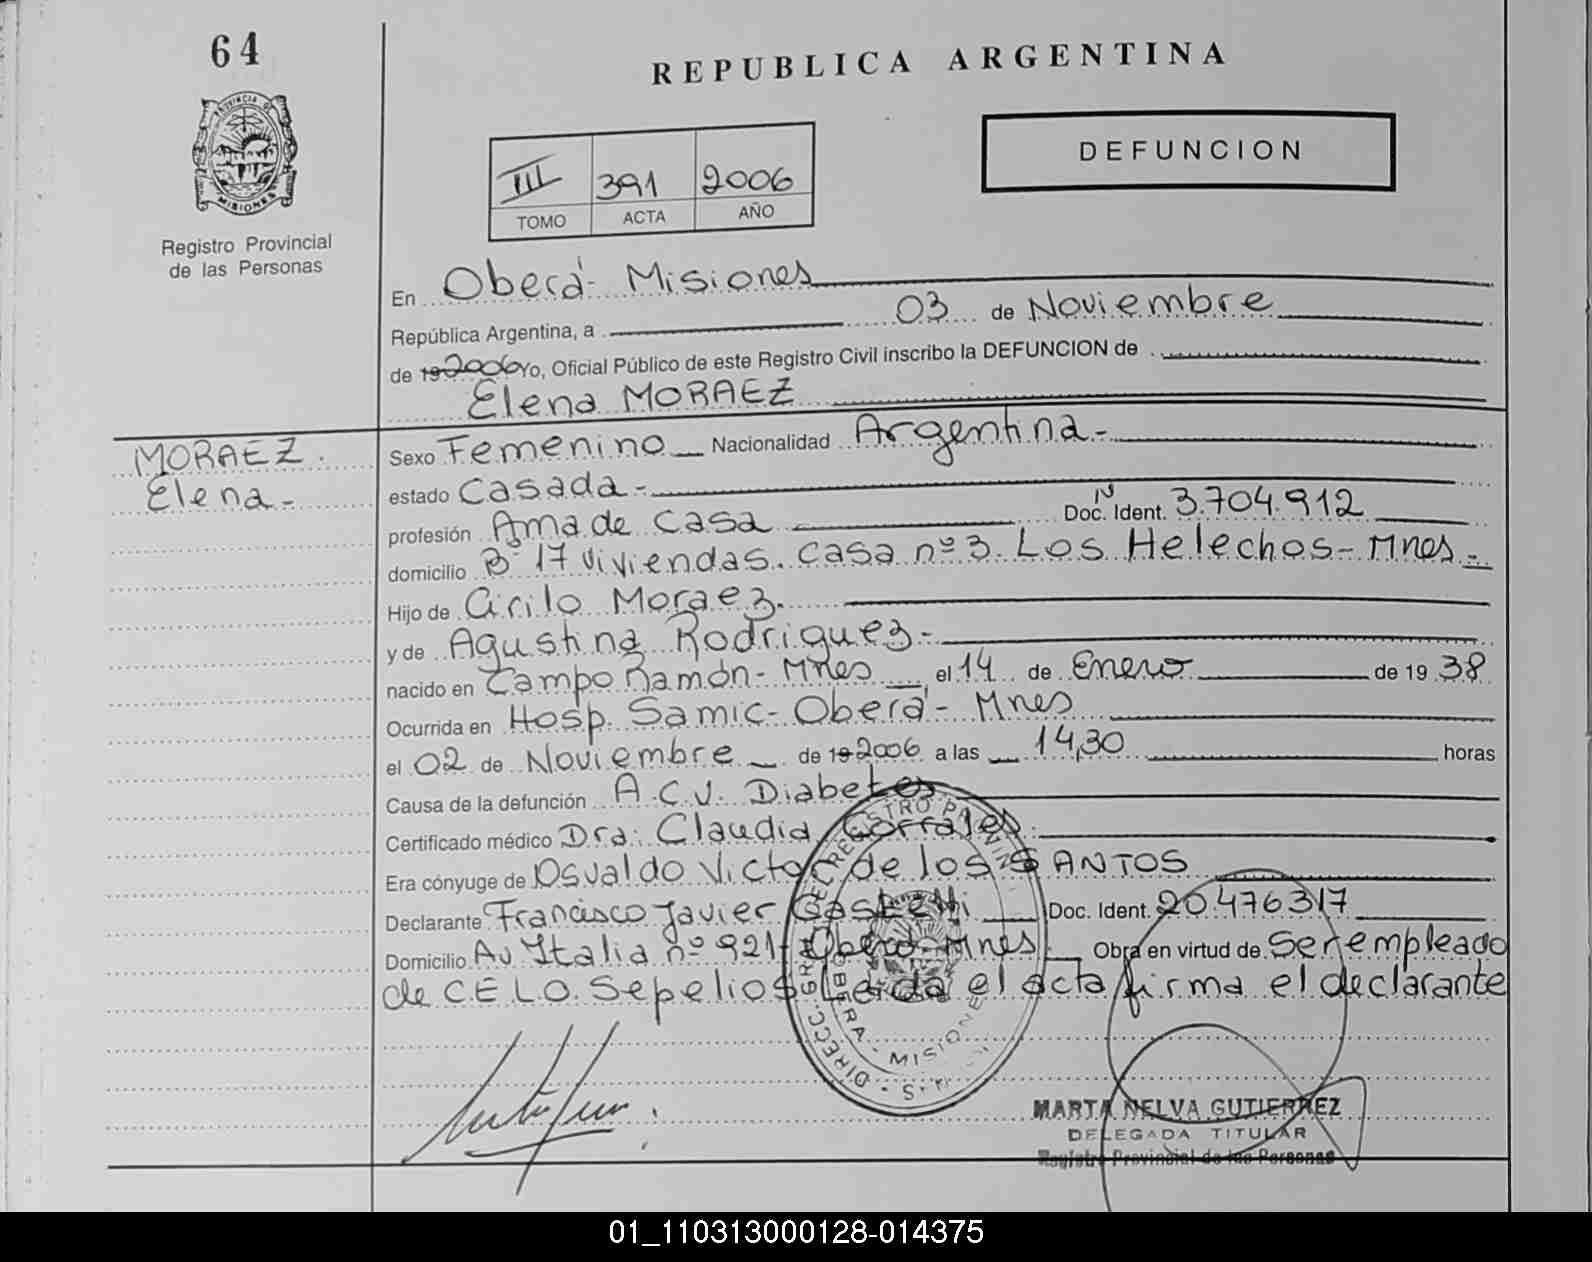 64
REPUBLICA ARGENTINA
PROVINCIA DE
MISIONES
Registro Provincial
de las Personas
DEFUNCION
III 391 2006
TOMO ACTA AÑO
En Oberá - Misiones
República Argentina, a 03 de Noviembre
de 19 2006 Yo, Oficial Público de este Registro Civil inscribo la DEFUNCION de
Elena MORAEZ
MORAEZ
Elena -
Sexo Femenino Nacionalidad Argentina -
estado Casada -
profesión Ama de casa Doc. Ident. N 3.704.912
domicilio Bº 17 viviendas. casa nº 3. Los Helechos - Mnes -
Hijo de Cirilo Moraez.
y de Agustina Rodriguez -
nacido en Campo Ramón - Mnes el 14 de Enero de 19 38
Ocurrida en Hosp. Samic - Oberá - Mnes
el 02 de Noviembre de 19 2006 a las 14,30 horas
Causa de la defunción A.C.V. Diabetes
Certificado médico Dra: Claudia Corrales
Era cónyuge de Osvaldo Victor de los SANTOS
Declarante Francisco Javier Gastelli Doc. Ident. 20.476317
Domicilio Av Italia nº 921 - Oberá - Mnes. Obra en virtud de Ser empleado
de C.E.L.O. Sepelios Leida el acta firma el declarante
MARTA NELVA GUTIERREZ
DELEGADA TITULAR
Registro Provincial de las Personas
01_110313000128-014375